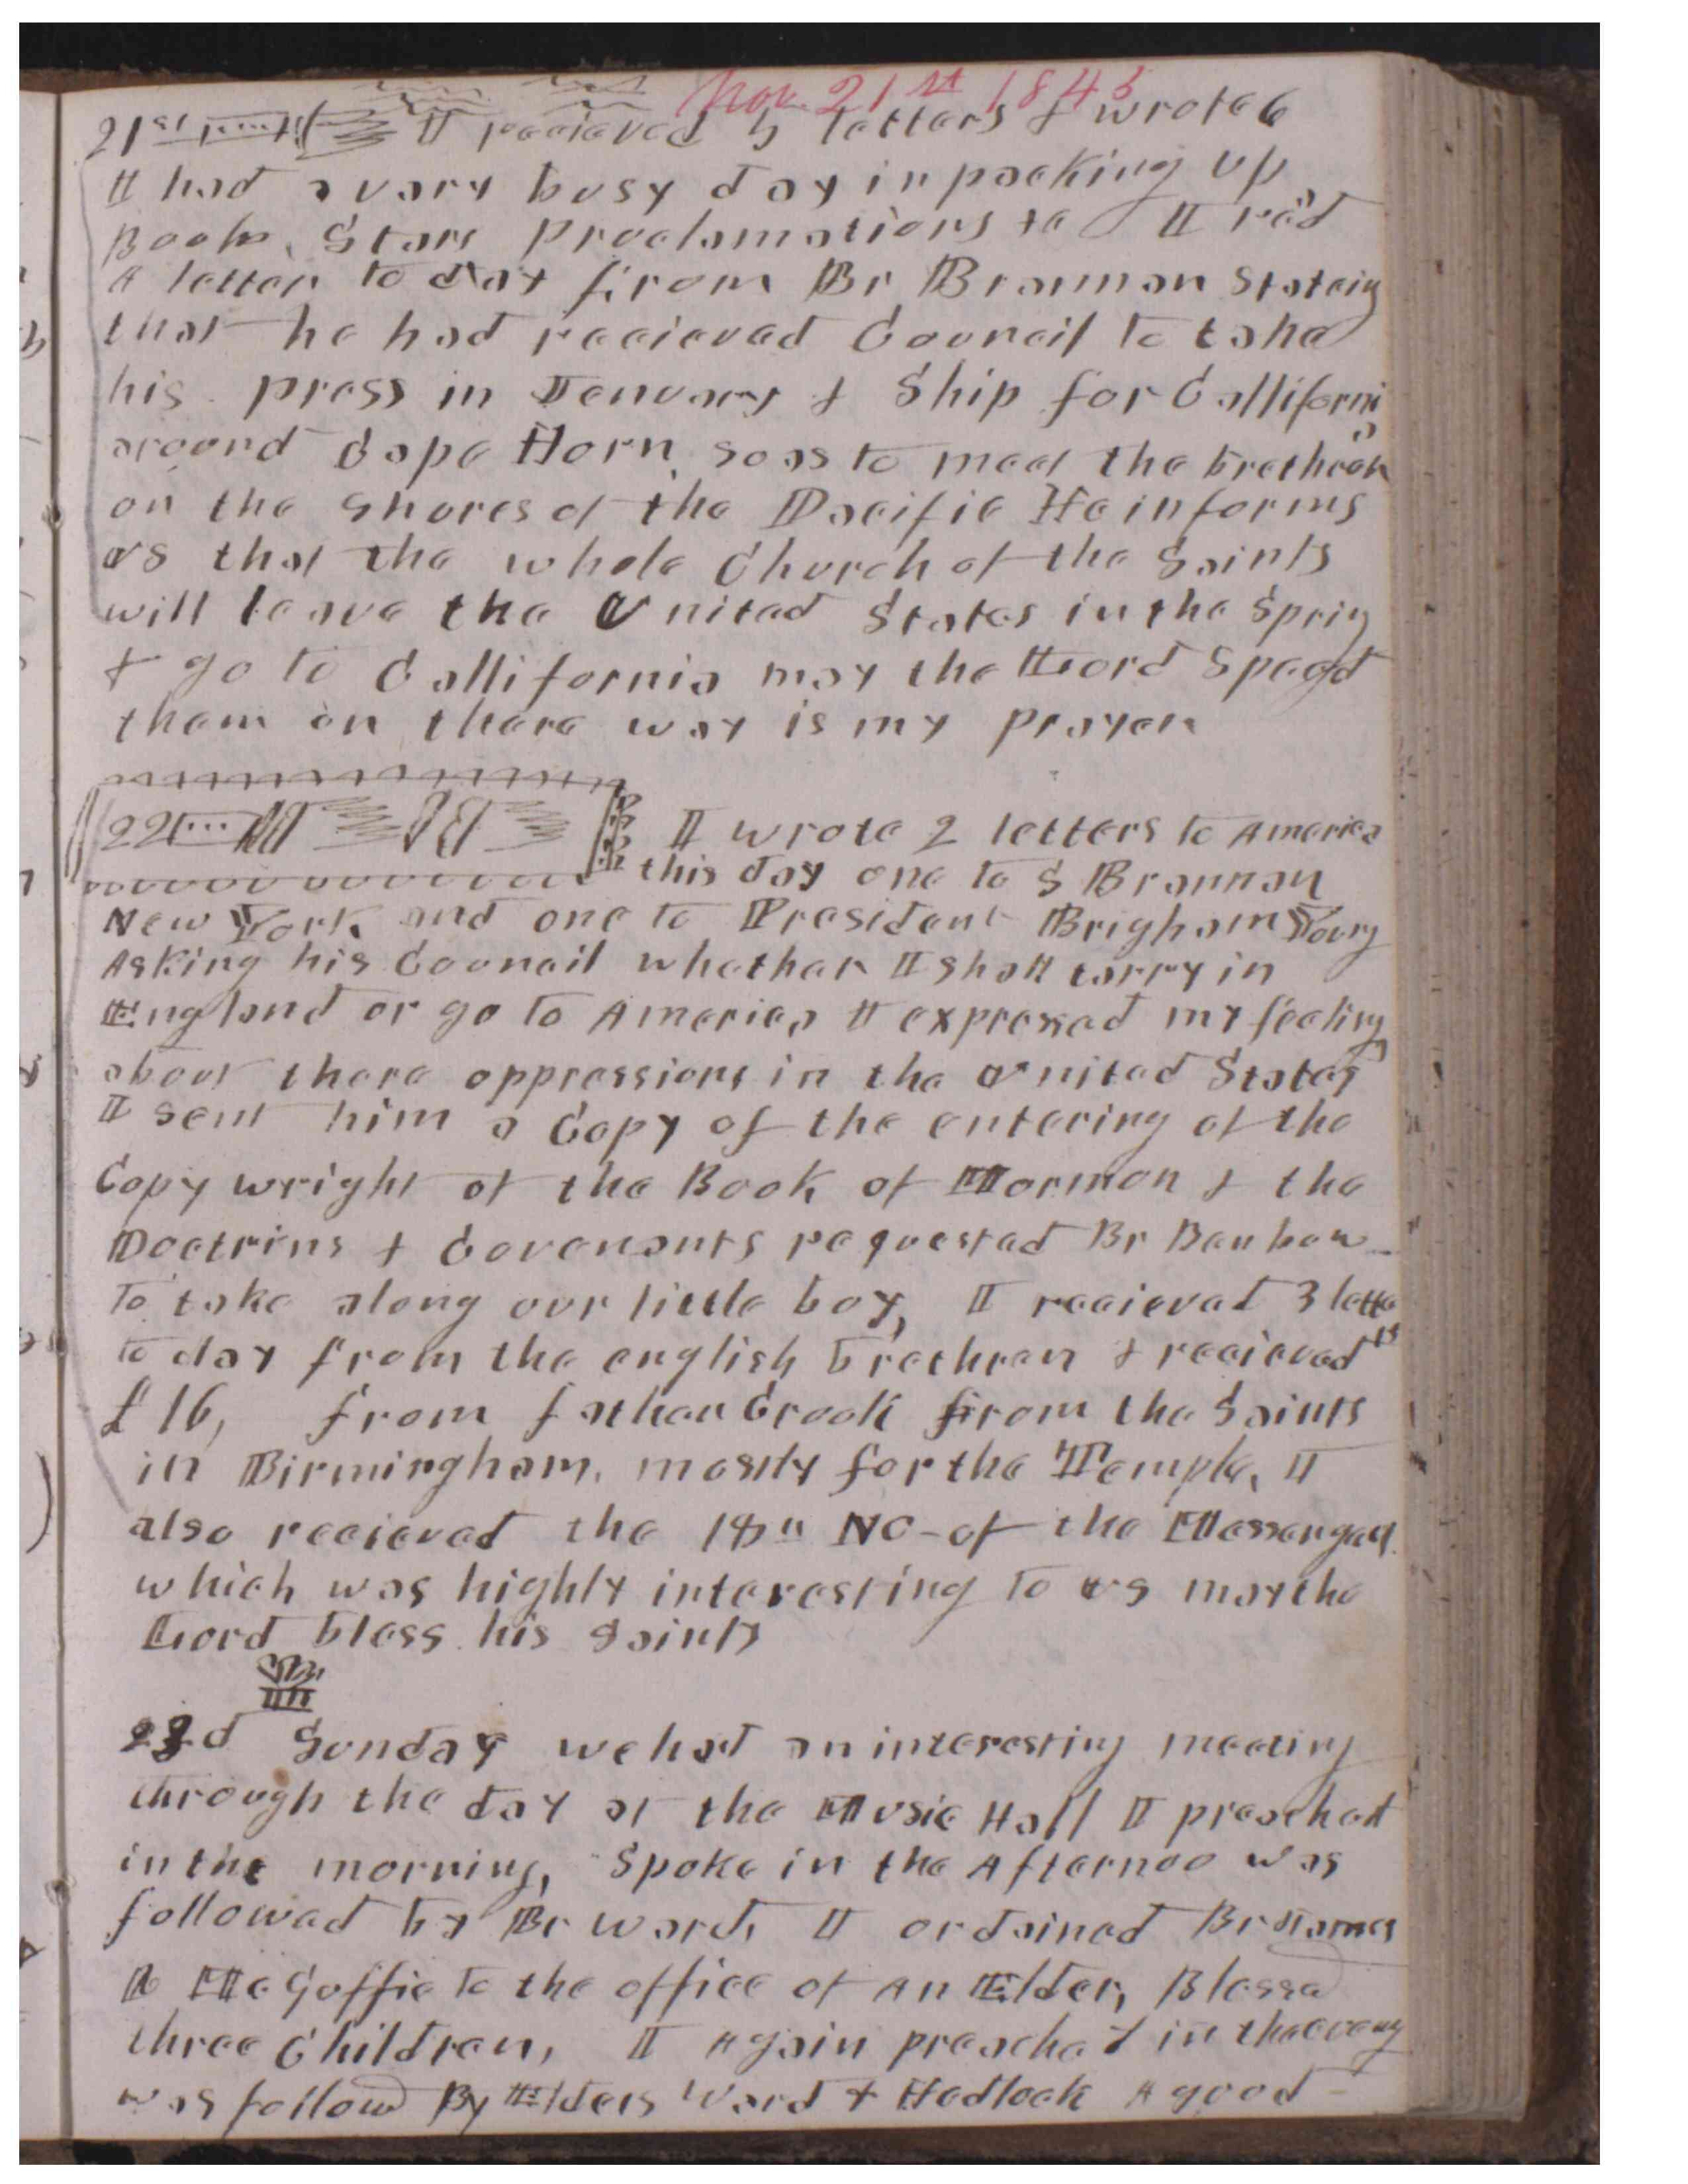 Nov. 21st 1845
21st I recieved 5 letters & wrote 6
I had a vary busy day in packing up
Books, Stars Proclamations &c I red
A letter to day from Br Brannan Stateing
that he had recieved Council to take
his press in January & Ship for Calliforni
a
around Cape Horn so as to meet the brethren
on the Shores of the Pacific He informs
us that the whole Church of the Saints
will leave the United States in the Spring
& go to Callifornia may the Lord Speed
them on there way is my prayer
22 I wrote 2 letters to America
this day one to S Brannan
New York and one to President Brigham Young
Asking his Council whether I shall tarry in
England or go to America I expressed my feelings
about there oppressions in the United States
I sent him a Copy of the entering of the
Copy wright of the Book of Mormon & the
Doctrins & Covenants requested Br Benbow
to take along our little boy, I recieved 3 lette
rs
to day from the english brethren & recieved
£16, from father Crook from the Saints
in Birmingham, mostly for the Temple, I
also recieved the No- of the Messenger
which was highly interesting to us may the
Lord bless his Saints
23d Sunday we had an interesting meeting
through the day at the Music Hall I preached
in the morning, Spoke in the Afternoo was
followed by Br Ward, I ordained Br James
McGuffie to the office of An Elder, Blessed
three Children, I Again preached in the eveng
was follow By Elders Ward & Hedlock A good